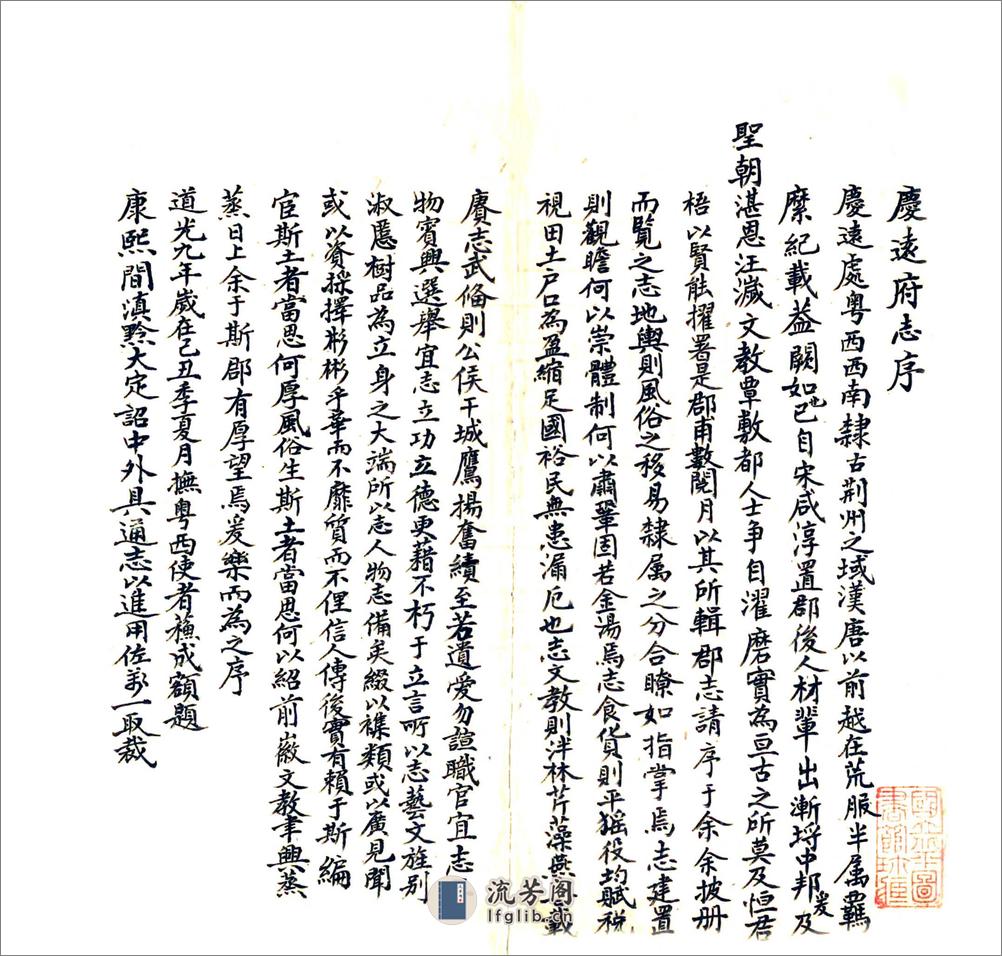 慶遠府志序
慶遠處粤西西南隸古荆州之域漢唐以前越在荒服半属羈
縻紀載葢闕如也已自宋咸淳置郡後人材輩出漸埒中邦爰及
聖朝湛恩汪濊文教覃敷都人士争自濯磨實為亘古之所莫及恒君
梧以賢能擢署是郡甫數閱月以其所輯郡志請序于余余披册
而覽之志地輿則風俗之移易隸属之分合瞭如指掌焉志建置
則觀瞻何以崇體制何以肅鞏固若金湯焉志食貨則平猺役均賦税
視田土户口為盈縮足國裕民無患漏卮也志文教則泮林芹藻燕載
賡志武俻則公侯干城鷹揚奮績至若遺愛勿諠職官宜志
物賓興選舉宜志立功立德更藉不朽于立言所以志藝文旌别
淑慝樹品為立身之大端所以志人物志備矣綴以襍類或以廣見聞
或以資採擇彬彬乎華而不靡質而不俚信今傳後實有賴于斯編
宦斯土者當思何厚風俗生斯土者當思何以紹前徽文教聿興蒸
蒸日上余于斯郡有厚望焉爰樂而為之序
道光九年歲在己丑季夏月撫粤西使者蘓成額題
康熙間滇黔大定詔中外具通志以進用佐一取裁
流芳阁
lfglib.cn